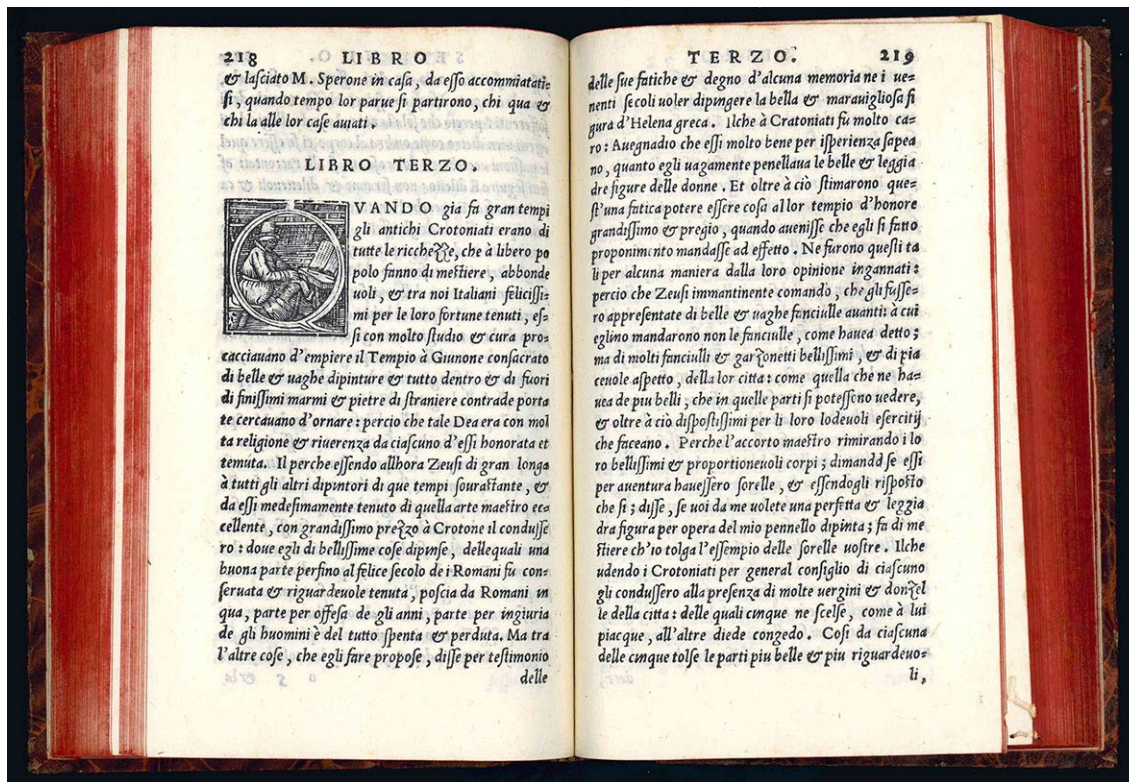 218 LIBRO
& lasciato M. Sperone in casa, da esso accommiatati=
si, quando tempo lor parue si partirono, chi qua &
chi la alle lor case auiati.
LIBRO TERZO.
QVANDO gia fa gran tempi
gli antichi Crotoniati erano di
tutte le ricchezze, che à libero po
polo fanno di mestiere, abbonde
uoli, & tra noi Italiani felicissi=
mi per le loro fortune tenuti, es=
si con molto studio & cura pro=
cacciauano d'empiere il Tempio à Giunone consacrato
di belle & uaghe dipinture & tutto dentro & di fuori
di finissimi marmi & pietre di straniere contrade porta
te cercauano d'ornare: percio che tale Dea era con mol
ta religione & riuerenza da ciascuno d'essi honorata et
temuta. Il perche essendo allhora Zeusi di gran longa
à tutti gli altri dipintori di que tempi sourastante, &
da essi medesimamente tenuto di quella arte maestro ec=
cellente, con grandissimo prezzo à Crotone il condusse
ro: doue egli di bellissime cose dipinse, delle quali una
buona parte perfino al felice secolo de i Romani fu con=
seruata & riguardeuole tenuta, poscia da Romani in
qua, parte per offesa de gli anni, parte per ingiuria
de gli huomini è del tutto spenta & perduta. Ma tra
l'altre cose, che egli fare propose, disse per testimonio
delle
TERZO. 219
delle sue fatiche & degno d'alcuna memoria ne i ue=
nenti secoli uoler dipingere la bella & marauigliosa fi
gura d'Helena greca. Ilche à Cratoniati fù molto ca=
ro: Auegnadio che essi molto bene per isperienza sapea
no, quanto egli uagamente penellaua le belle & leggia
dre figure delle donne. Et oltre à ciò stimarono que=
st'una fatica potere essere cosa al lor tempio d'honore
grandissimo & pregio, quando auenisse che egli si fatto
proponimento mandasse ad effetto. Ne furono questi ta
li per alcuna maniera dalla loro opinione ingannati:
percio che Zeusi immantinente comandò, che gli fusse=
ro appresentate di belle & uaghe fanciulle auanti: à cui
eglino mandarono non le fanciulle, come hauea detto;
ma di molti fanciulli & garzonetti bellissimi, & di pia
ceuole aspetto, della lor citta: come quella che ne ha=
uea de piu belli, che in quelle parti si potessono uedere,
& oltre à ciò dispostissimi per li loro lodeuoli esercitij
che faceano. Perche l'accorto maestro rimirando i lo
ro bellissimi & proportioneuoli corpi; dimandò se essi
per auentura hauessero sorelle, & essendogli risposto
che si; disse, se uoi da me uolete una perfetta & leggia
dra figura per opera del mio pennello dipinta; fa di me
stiere ch'io tolga l'essempio delle sorelle uostre. Ilche
udendo i Crotoniati per general consiglio di ciascuno
gli condussero alla presenza di molte uergini & donzel
le della citta: delle quali cinque ne scelse, come à lui
piacque, all'altre diede congedo. Cosi da ciascuna
delle cinque tolse le parti piu belle & piu riguardeuo=
li,